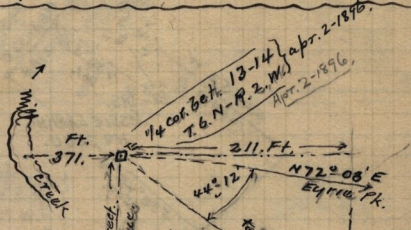 1/4 cor. bet. 13-14 } apr. 2-1896.
T. 6 N - R. 2. W.
Apr. 2-1896.
Mill
Creek
Ft.
371.
211. Ft.
N 72° 08' E
Eyrie Pk.
44°-12'